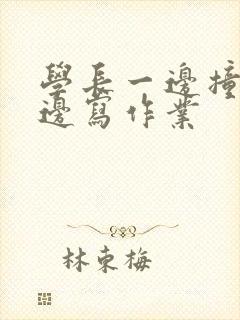 學長一邊撞
邊寫作業
林東梅